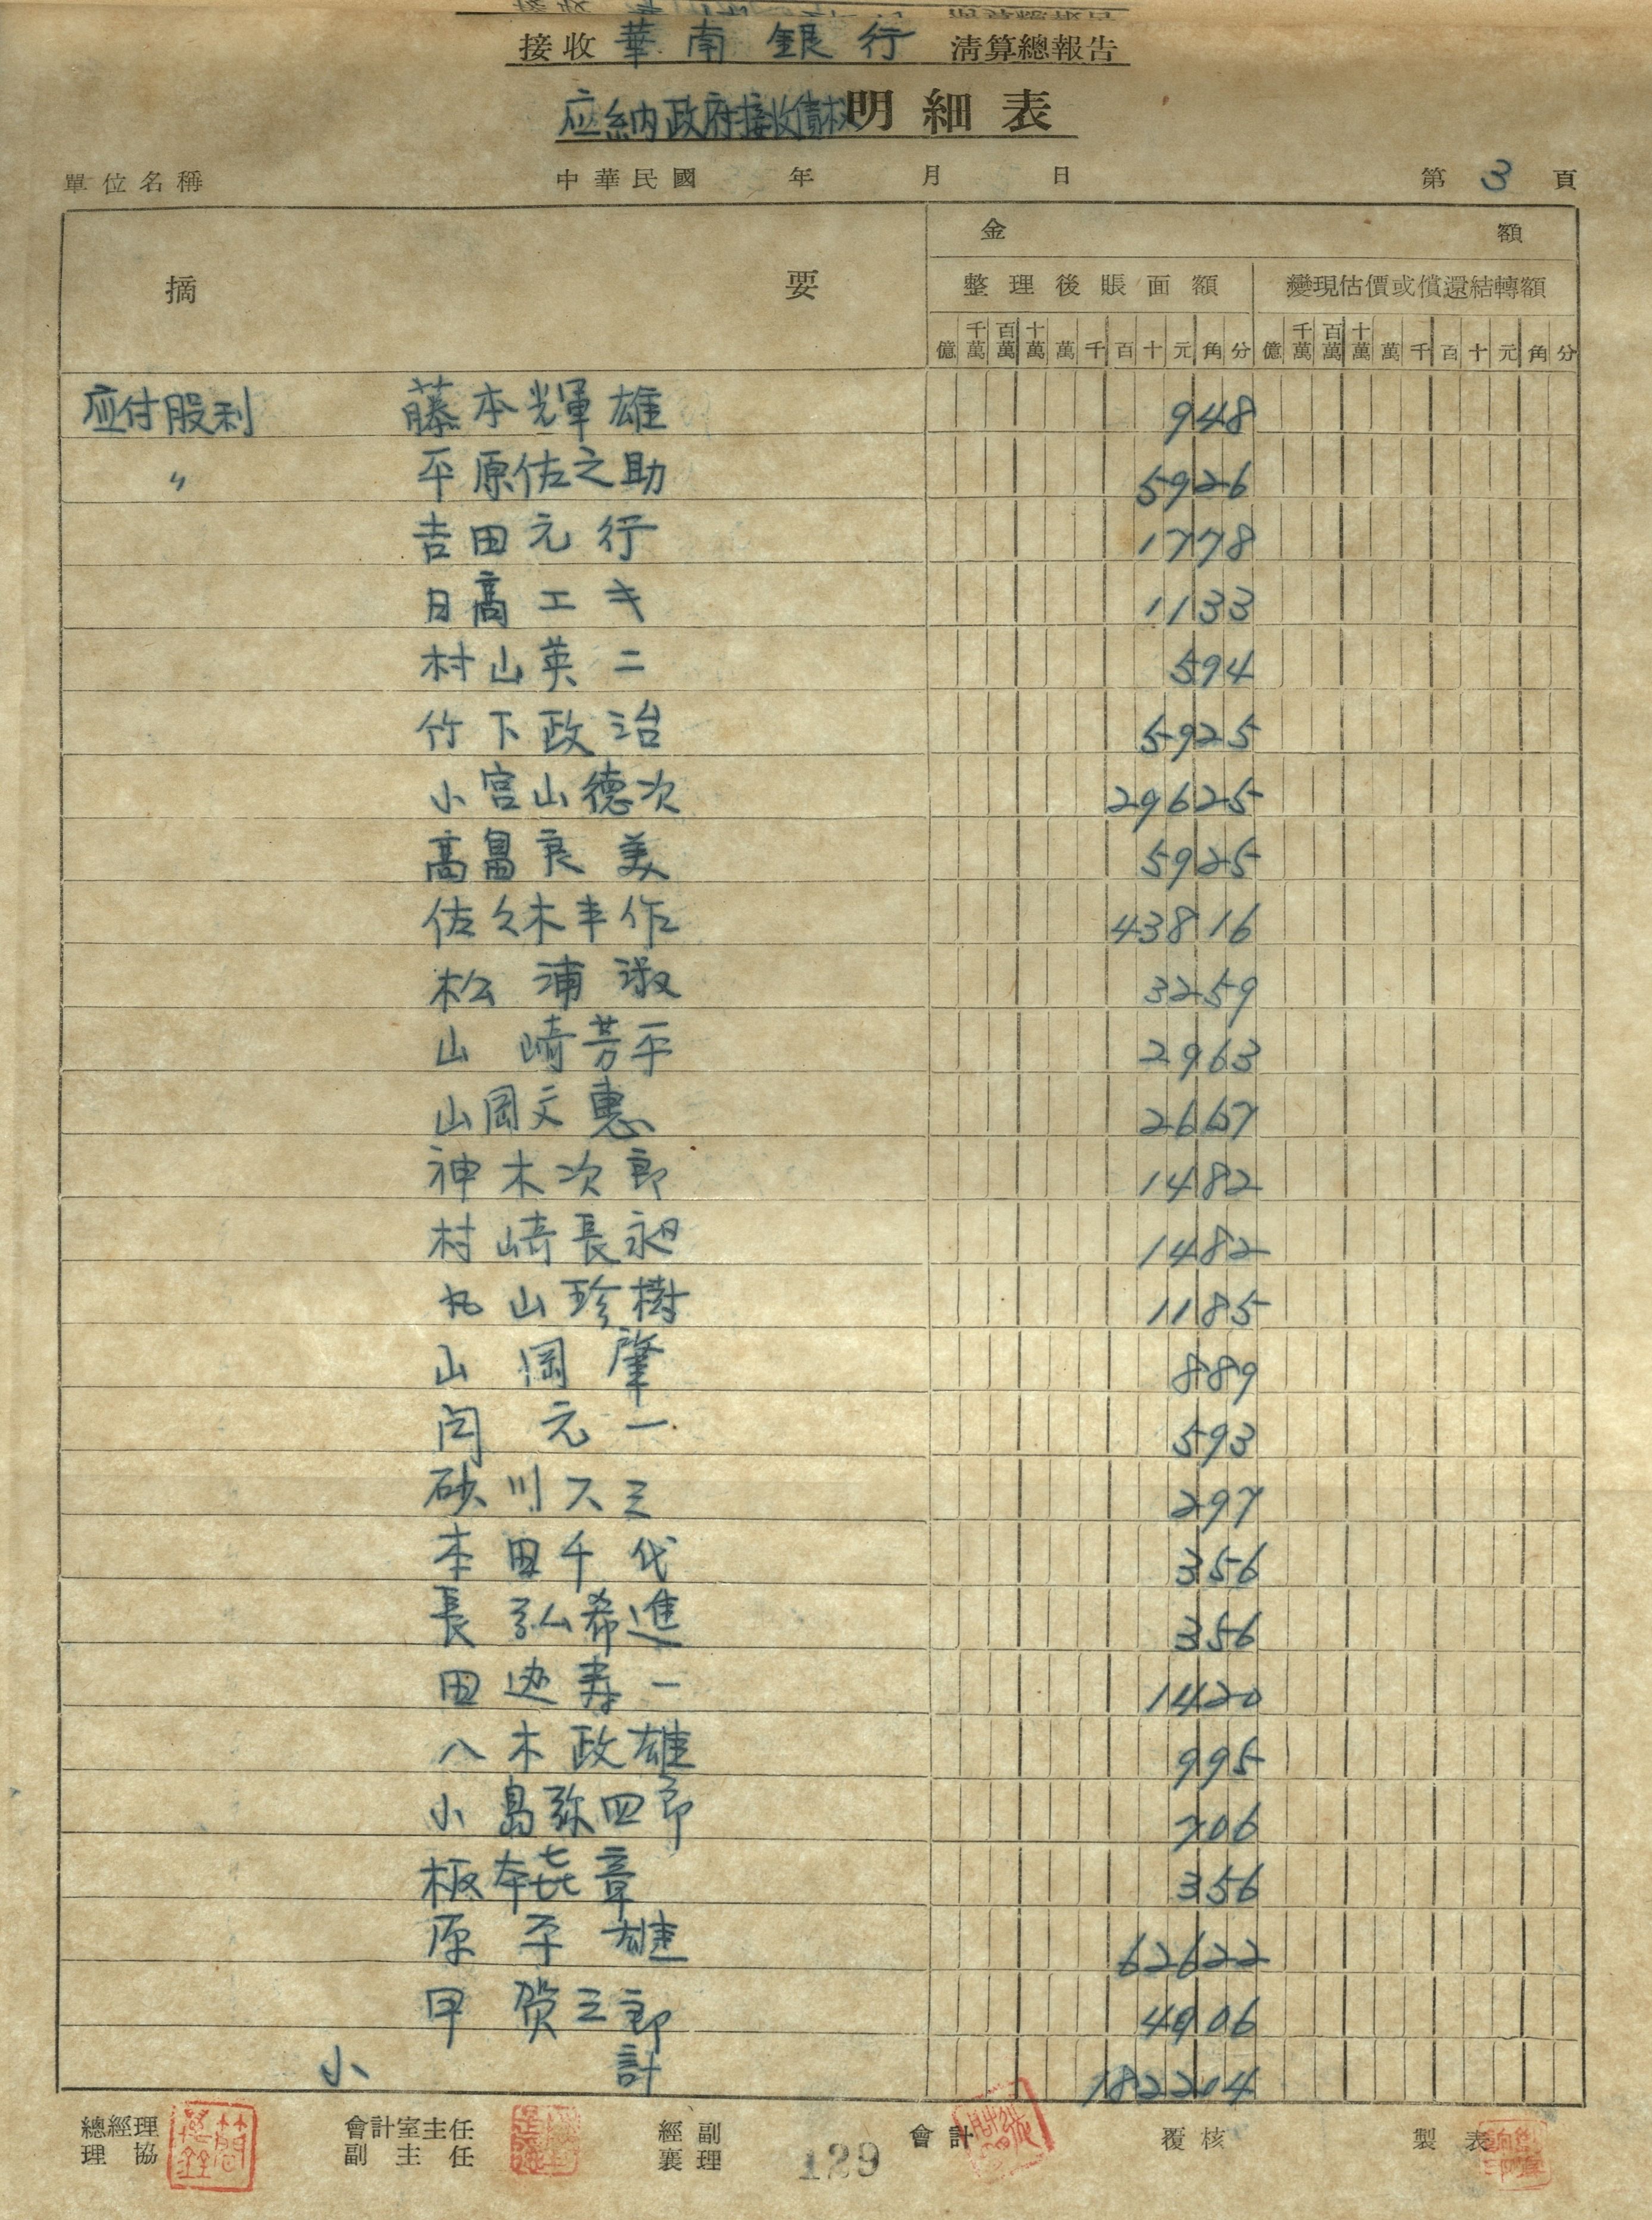 接收 華南銀行 清算總報告
应納政府接收債权明細表
單位名稱 中華民國 年 月 日 第 3 頁
摘 要 金 額
整理後賬面額 變現估價或償還結轉額
億 千萬 百萬 十萬 萬 千 百 十 元 角 分 億 千萬 百萬 十萬 萬 千 百 十 元 角 分
应付股利 藤本輝雄 948
〃 平原佐之助 5926
吉田元行 1778
日高エキ 1133
村山英二 594
竹下政治 5925
小宮山德次 29625
高畠良美 5925
佐久木丰作 43816
松浦淑 3259
山崎芳平 2963
山岡文惠 2667
神木次郎 1482
村崎長昶 1482
丸山珍樹 1185
山岡肇 889
闩元一 593
砂川スミ 297
本田千代 356
長弘希進 356
田边寿一 1420
八木政雄 995
小島弥四郎 706
板本㐂章 356
原平雄 62622
甲賀三郎 4906
小計 182204
總經理 會計室主任 經副 會計 覆核 製表
協理 副主任 襄理
129